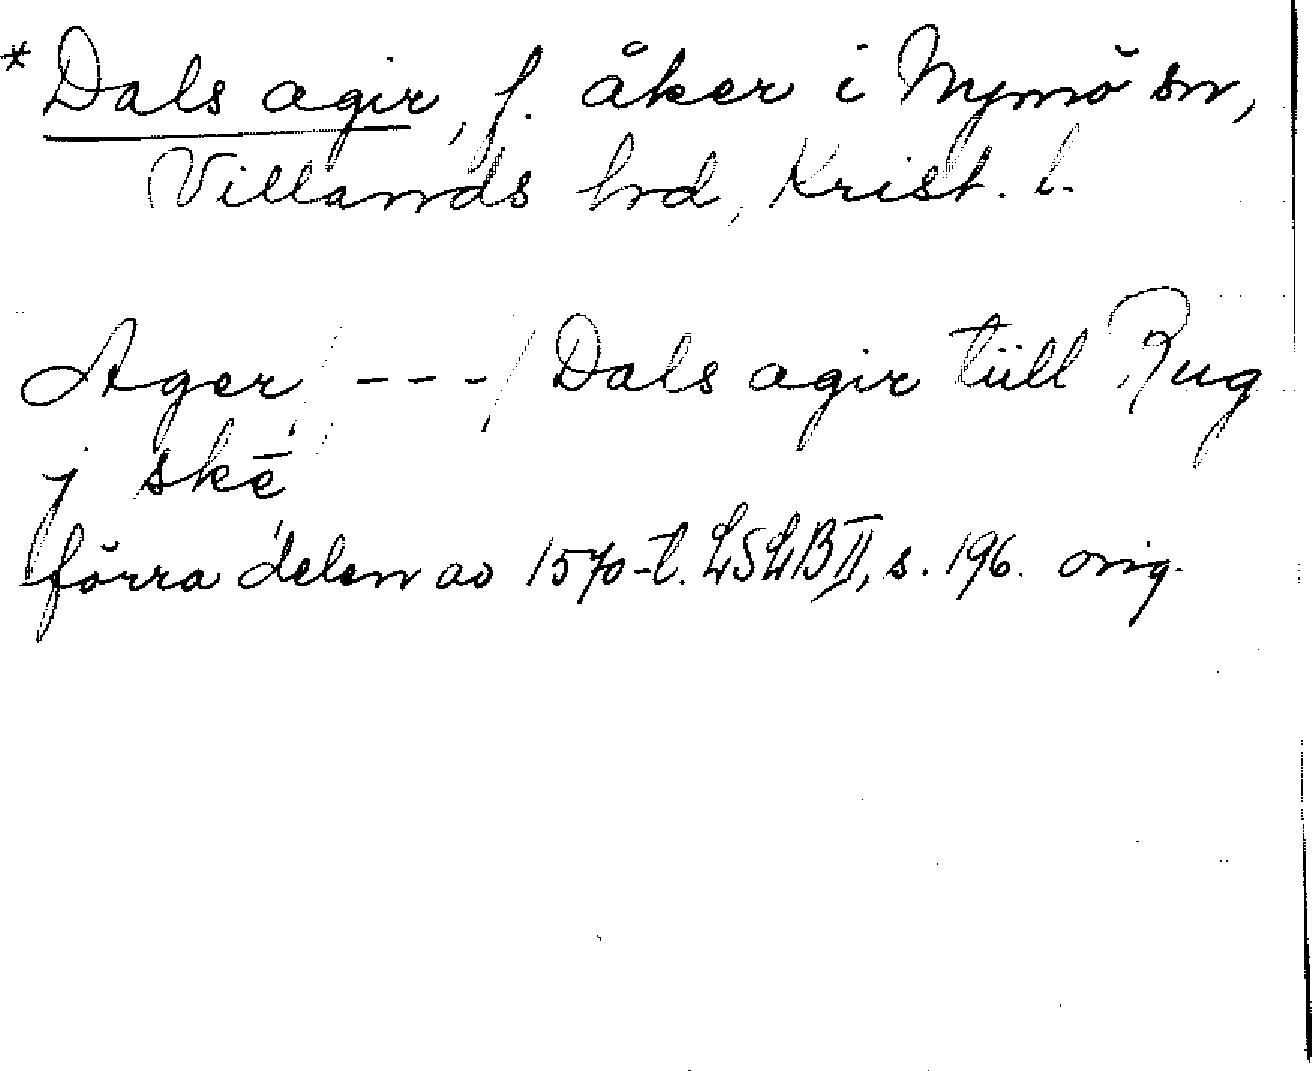 * Dals agir, f. åker i Nymö sn,
Villands hrd, Krist. l.
Ager, /---/ Dals agir tüll Rug
j skē
förra delen av 1570-t. LSLB II, s. 196. orig.